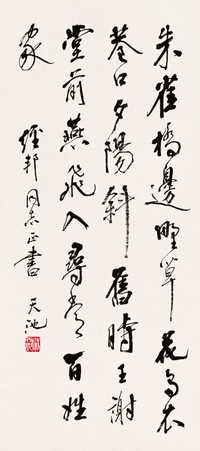 朱雀橋邊野草花烏衣
巷口夕陽斜舊時王謝
堂前燕飛入尋常百姓
家
經邦同志正書 天池